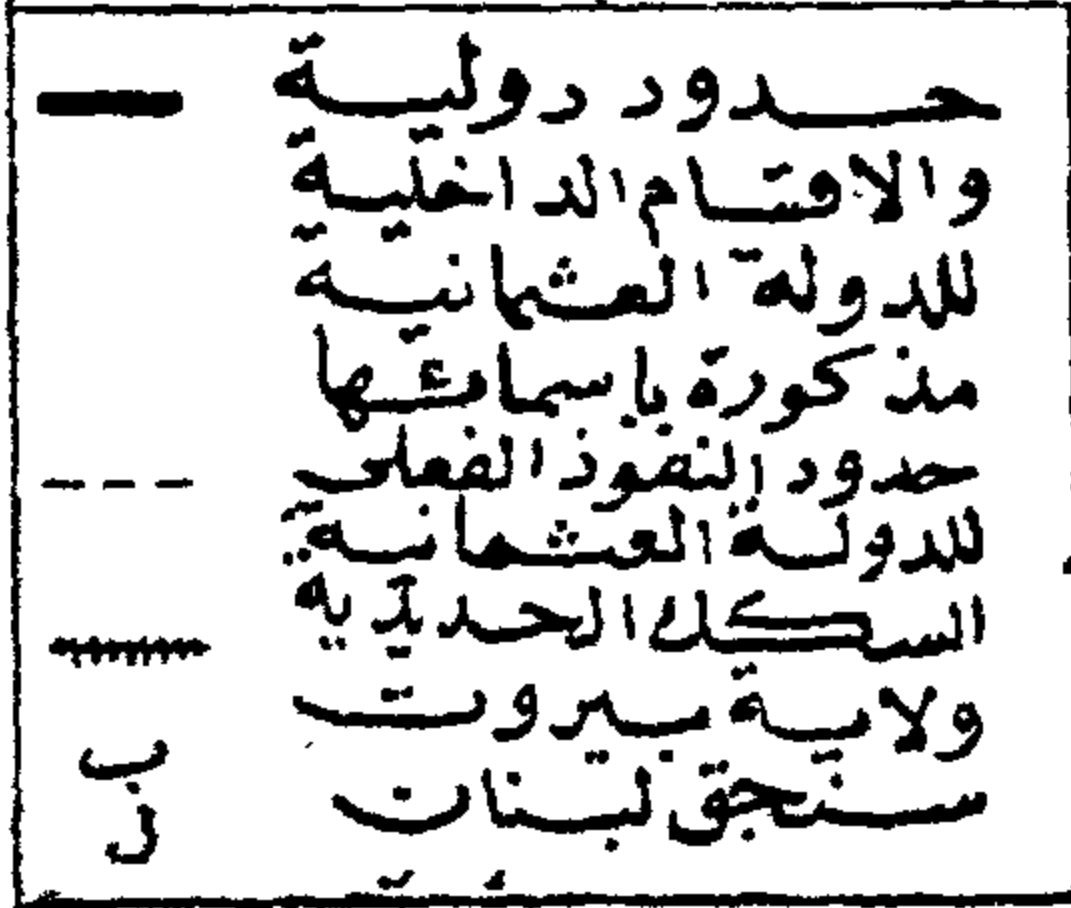 حدود دولية
والاقسام الداخلية
للدولة العثمانية
مذكورة باسمائها
حدود النفوذ الفعلى
للدولة العثمانية
السكك الحديدية
ولاية بيروت ب
سنجق لبنان ل